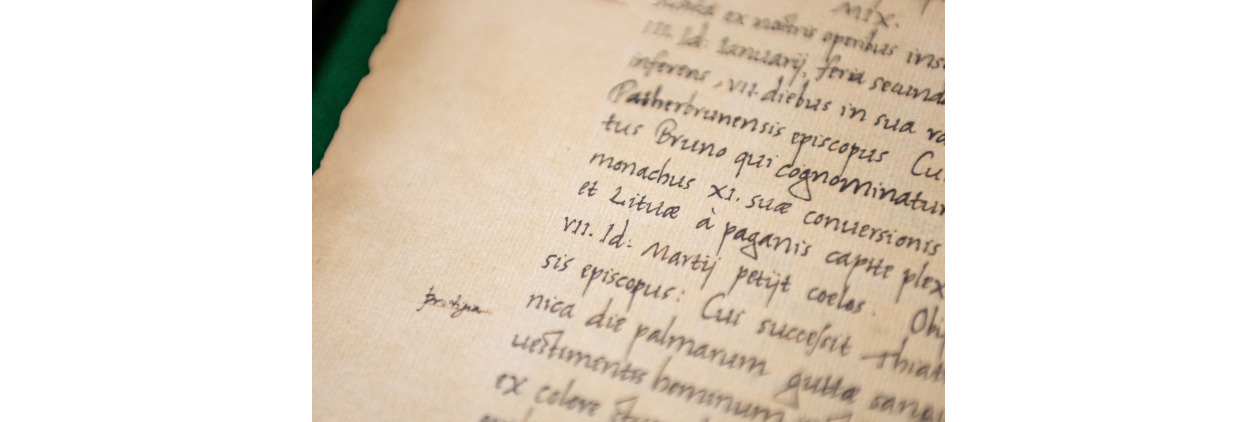 MIX.
ex nostris operibus
III. Id: Ianuarij, feria secund
inferens, VII. diebus in sua
Patherbrunensis episcopus Cu
tus Bruno qui cognominatur
monachus XI. suæ conuersionis
et Lituæ à paganis capite plex
VII. Id: Martij petijt coelos. Obi
sis episcopus: Cui succeſsit Thiat
nica die palmarum guttæ sangu
ueſtimentis hominum
ex colore